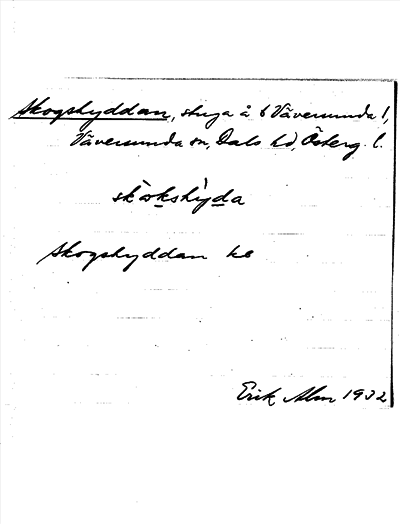 Skogshyddan, stuga å 6 Väversunda 1,
Väversunda sn, Dals hd, Österg. l.
skògkshỳda
Skogshyddan kb
Erik Alm 1932